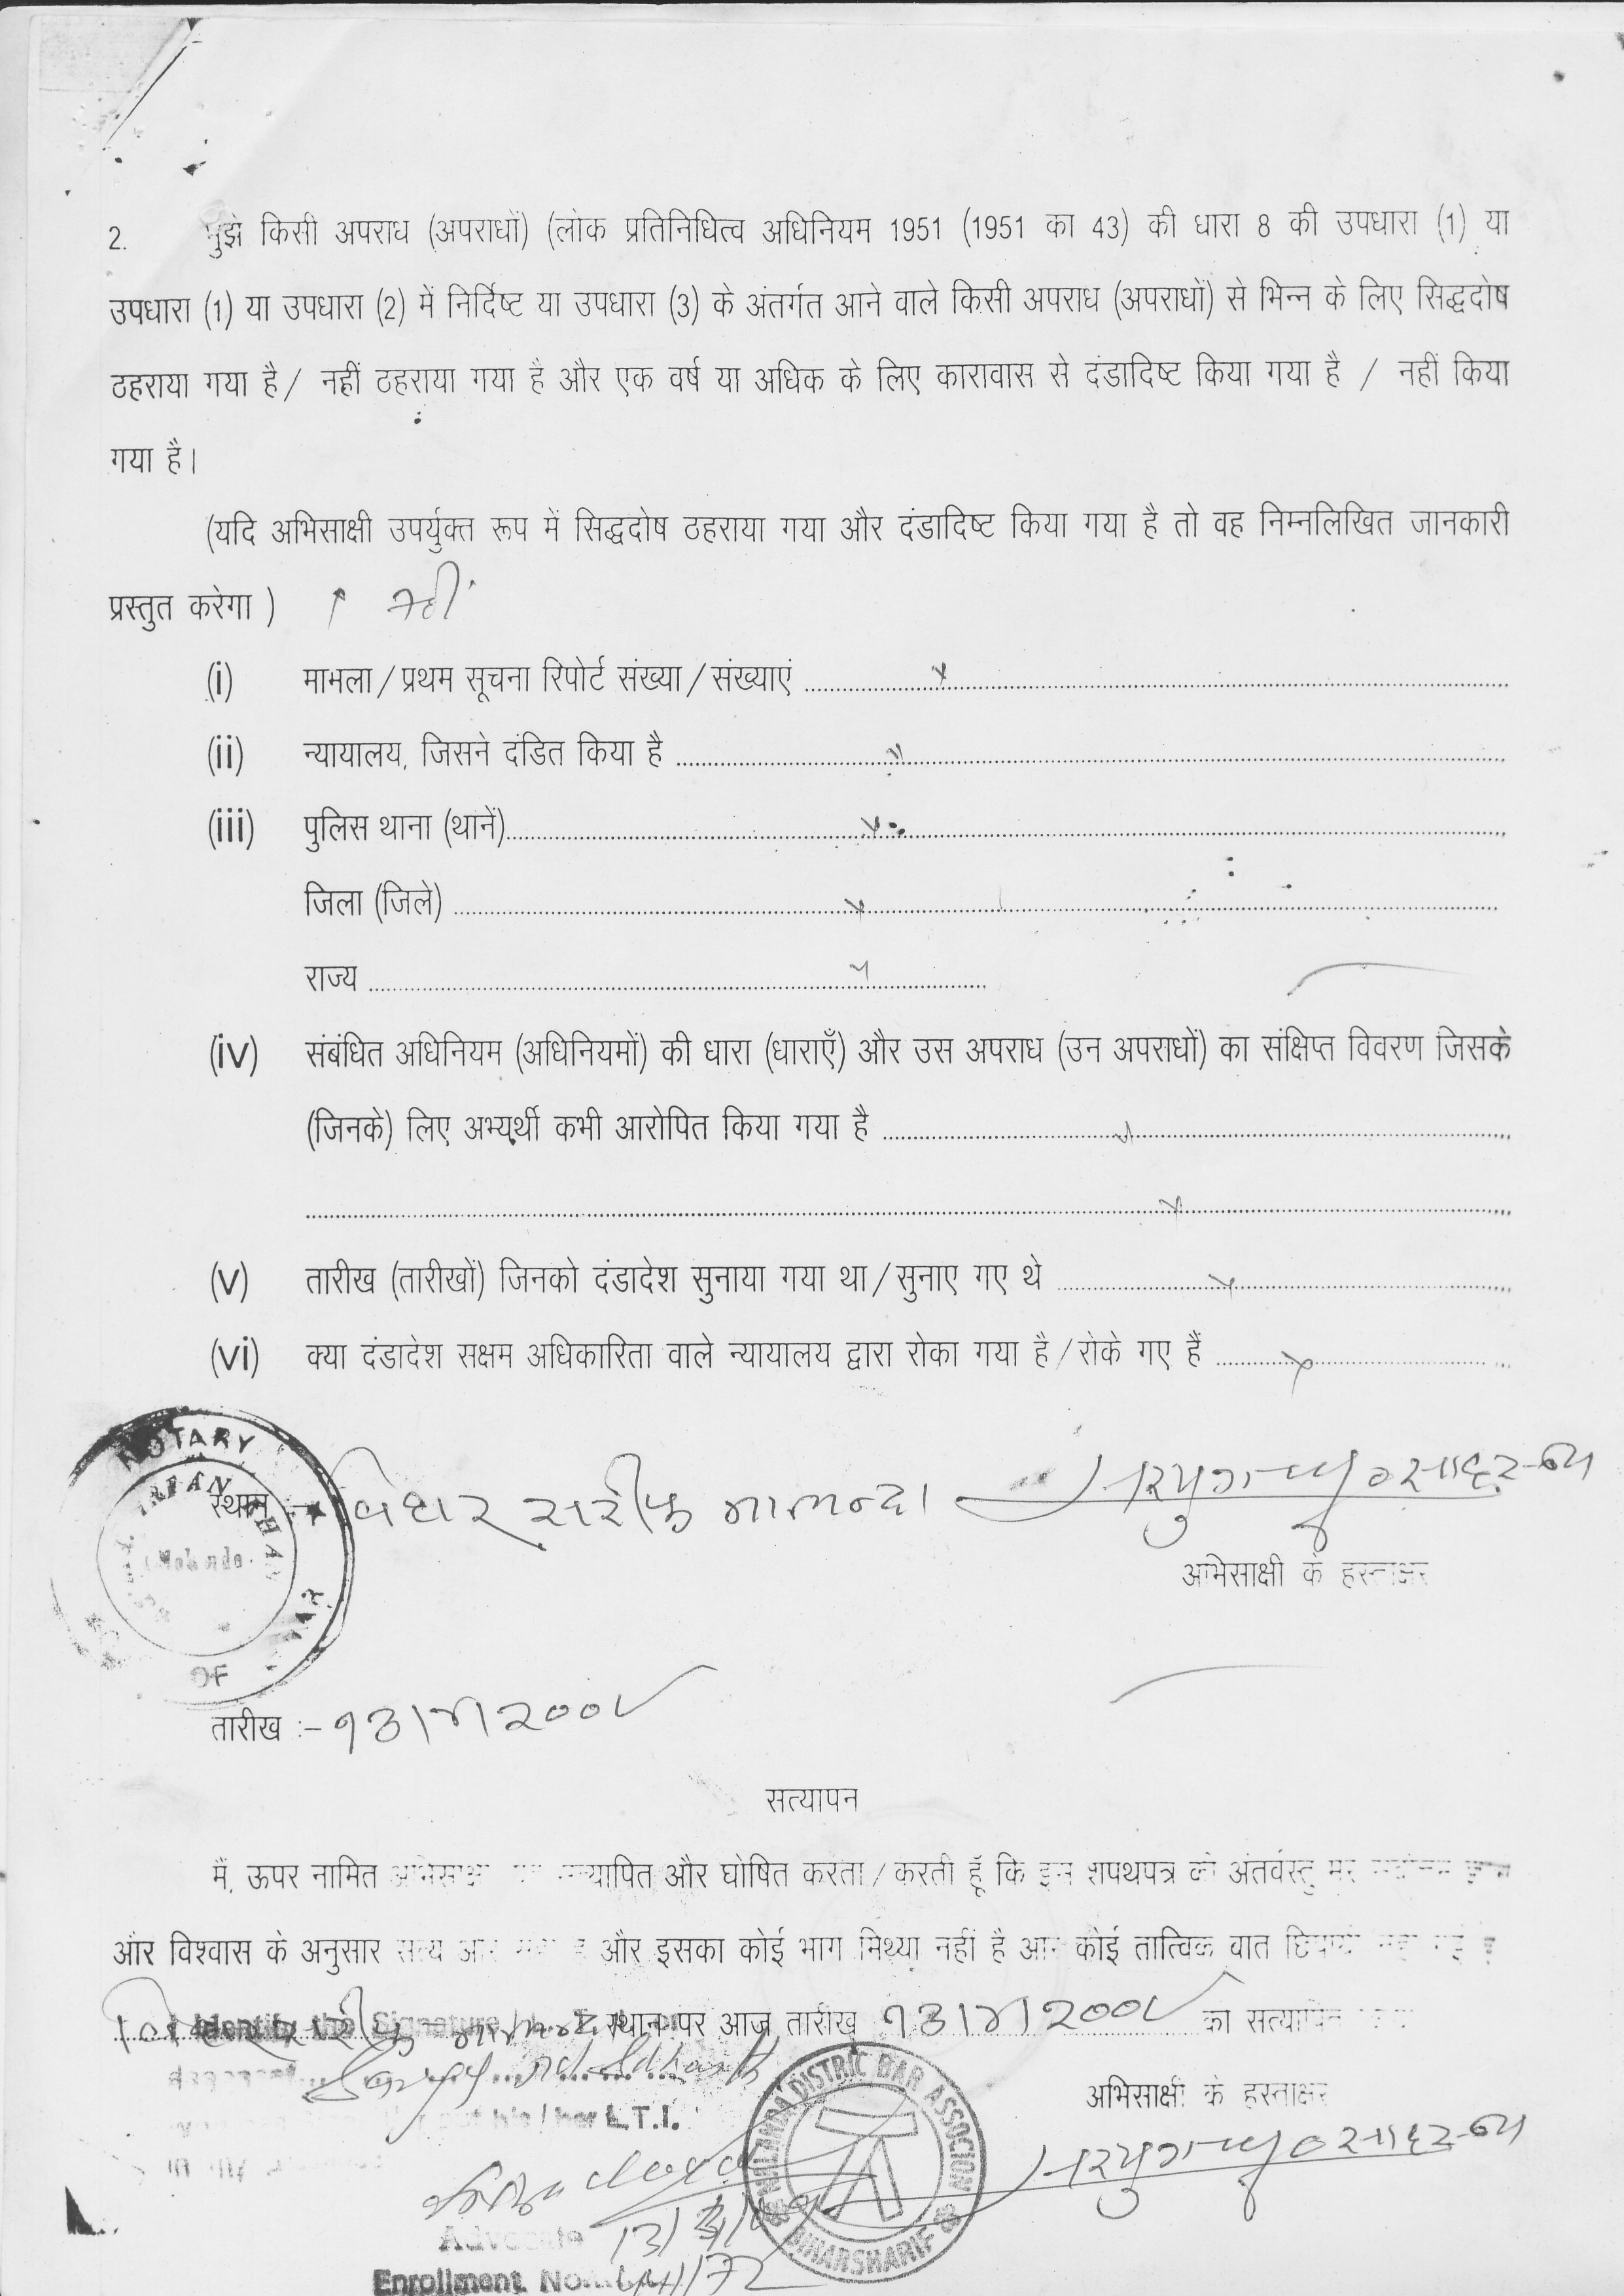 2. मुझे किसी अपराध (अपराधों) (लोक प्रतिनिधित्व अधिनियम 1951 (1951 का 43) की धारा 8 की उपधारा (1) या
उपधारा (1) या उपधारा (2) में निर्दिष्ट या उपधारा (3) के अंतर्गत आने वाले किसी अपराध (अपराधों) से भिन्न के लिए सिद्धदोष
ठहराया गया है / नहीं ठहराया गया है और एक वर्ष या अधिक के लिए कारावास से दंडादिष्ट किया गया है / नहीं किया
गया है।
(यदि अभिसाक्षी उपर्युक्त रूप में सिद्धदोष ठहराया गया और दंडादिष्ट किया गया है तो वह निम्नलिखित जानकारी
प्रस्तुत करेगा ) नहीं
(i) मामला / प्रथम सूचना रिपोर्ट संख्या / संख्याएं
(ii) न्यायालय, जिसने दंडित किया है
(iii) पुलिस थाना (थानें)
जिला (जिले)
राज्य
(iv) संबंधित अधिनियम (अधिनियमों) की धारा (धाराएँ) और उस अपराध (उन अपराधों) का संक्षिप्त विवरण जिसके
(जिनके) लिए अभ्यर्थी कभी आरोपित किया गया है
(v) तारीख (तारीखों) जिनको दंडादेश सुनाया गया था / सुनाए गए थे
(vi) क्या दंडादेश सक्षम अधिकारिता वाले न्यायालय द्वारा रोका गया है / रोके गए हैं
NOTARY
स्थान :- विहार सरीफ नालन्दा
अभिसाक्षी के हस्ताक्षर
OF
तारीख :- १३|४|२००४
सत्यापन
मैं, ऊपर नामित सत्यापित और घोषित करता / करती हूँ कि इस शपथपत्र की अंतर्वस्तु मेरे
और विश्वास के अनुसार सत्य और कोई भाग मिथ्या नहीं है और कोई तात्विक बात छिपायी
विहार सरीफ नालन्दा स्थान पर आज तारीख १३|४|२००४ को सत्यापित
Identify the Signature
अभिसाक्षी के हस्ताक्षर
his / her L.T.I.
in my
NALANDA DISTRIC BAR ASSOCION
BIHARSHARIF
Advocate
Enrollment No.